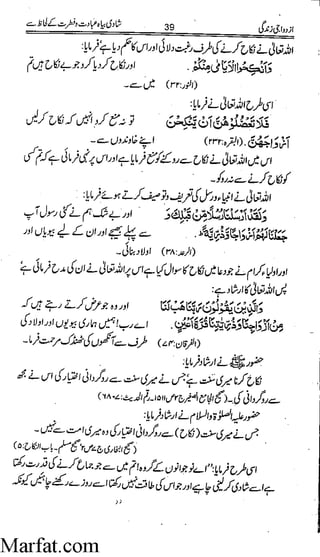 ازدواجی زندگی 39 شادی بیاہ عبادت و فطرت کے لحاظ سے
اللہ تعالیٰ نے نکاح کرنے کی طرف رغبت دلائی اور اس کا حکم دیا ہے فرمایا:
وَاَنْكِحُوا الْاَيَامٰى مِنْكُمْ اور نکاح کر دیا کرو جو بے نکاح ہیں تم
(النور:۳۲) میں سے۔
اسی طرح اللہ تعالیٰ نے فرمایا:
فَلَا تَعْضُلُوْهُنَّ اَنْ يَّنْكِحْنَ تو نہ منع کرو انہیں کہ نکاح کر لیں
اَزْوَاجَهُنَّ (البقرہ:۲۳۲) اپنے خاوندوں سے۔
اس میں اللہ تعالیٰ نے نکاح سے روکنے کو منع فرمایا ہے اور اس پر نہی فرمائی ہے کہ تم کسی
کو نکاح کرنے سے نہ روکو۔
اللہ تعالیٰ نے انبیاء و رسل کی تعریف و توصیف کرتے ہوئے فرمایا:
وَلَقَدْ اَرْسَلْنَا رُسُلًا مِّنْ قَبْلِكَ وَ اور بے شک ہم نے کئی رسول آپ
جَعَلْنَا لَهُمْ اَزْوَاجًا وَّذُرِّيَّةً سے پہلے بھیجے اور ان کے لیے بیویاں اور
(الرعد:۳۸) اولاد بنائی۔
اور اولیاء کرام نے جو دعا میں نکاح کا سوال کیا ہے اس پر اللہ تعالیٰ نے ان کی مدح فرمائی ہے
پس اللہ تعالیٰ کا ارشاد ہے:
وَالَّذِيْنَ يَقُوْلُوْنَ رَبَّنَا هَبْ لَنَا اور وہ جو عرض کرتے رہتے ہیں کہ
مِنْ اَزْوَاجِنَا وَذُرِّيّٰتِنَا قُرَّةَ اَعْيُنٍ اے رب ہمیں ہماری بیویوں اور اولاد کی
(الفرقان:۷۴) طرف سے آنکھوں کی ٹھنڈک مرحمت فرما۔
حضور ﷺ نے ارشاد فرمایا:
نکاح کرنا میری سنت ہے جس نے میری سنت سے روگردانی اختیار کی اس نے مجھ
سے روگردانی کی۔ (صحیح الجامع الصغیر رقم الحدیث:۶۸۰۷)
حضور علیہ الصلوٰۃ والسلام نے ارشاد فرمایا:
جس نے میری سنت (نکاح) سے روگردانی اختیار کی وہ میری امت سے نہیں۔
(صحیح البخاری صحیح مسلم۔ باب النکاح:۵)
اسی طرح فرمایا: اے نوجوانوں کے گروہ تم میں سے جو جماع کرنے کی قدرت رکھتا
ہے اسے شادی کر لینی چاہیے اور جو اس کی طاقت نہیں رکھتا اسے روزے رکھنے چاہئیں کیونکہ
Marfat.com